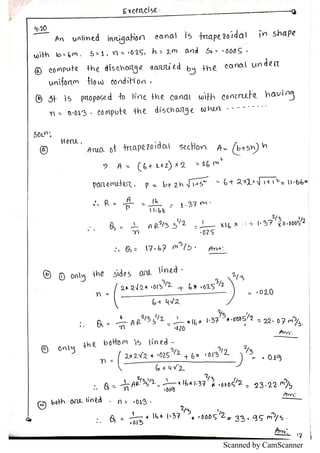 Exercise.
4.20
An unlined irrigation canal is trapezoidal in shape
with b=6m, S=1, n=.025, h=2m and S₀=.0005.
ⓐ compute the discharge carried by the canal under
uniform flow condition.
ⓑ It is proposed to line the canal with concrete having
n=0.013. compute the discharge when --------
Soln;
Here,
ⓐ Area of trapezoidal section A=(b+sh)h
⇒ A = (6+1×2)×2 = 16 m²
Parameter, P = b+2h√1+s² = 6+2×2×√1+1² = 11.66m
∴ R = A/P = 16/11.66 = 1.37m.
∴ Q = 1/n AR^2/3 S^1/2 = 1/.025 × 16 × 1.37^2/3 × .0005^1/2
∴ Q = 17.67 m³/s. Ans:
ⓑ ① only the sides are lined -
n = ( 2×2√2×.013^3/2 + 6×.025^3/2 / 6+4√2 )^2/3 = .020
∴ Q = 1/n AR^2/3 S^1/2 = 1/.020 × 16 × 1.37^2/3 × .0005^1/2 = 22.07 m³/s.
Ans:
only the bottom is lined -
n = ( 2×2√2×.025^3/2 + 6×.013^3/2 / 6+4√2 )^2/3 = .019
∴ Q = 1/n AR^2/3 S^1/2 = 1/.019 × 16×1.37^2/3 × .0005^1/2 = 23.22 m³/s
Ans:
both are lined - n=.013.
∴ Q = 1/.013 × 16×1.37^2/3 × .0005^1/2 = 33.95 m³/s.
Ans:
17
Scanned by CamScanner